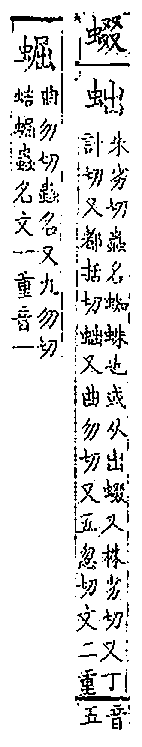 蝃䖦
朱劣切蟲名蜘蛛也或从出蝃又株劣切又丁
計切又都括切䖦又曲勿切又五忽切文二重
音
五
𧌑
曲勿切蟲名又九勿切
蛣𧌑蟲名文一重音一